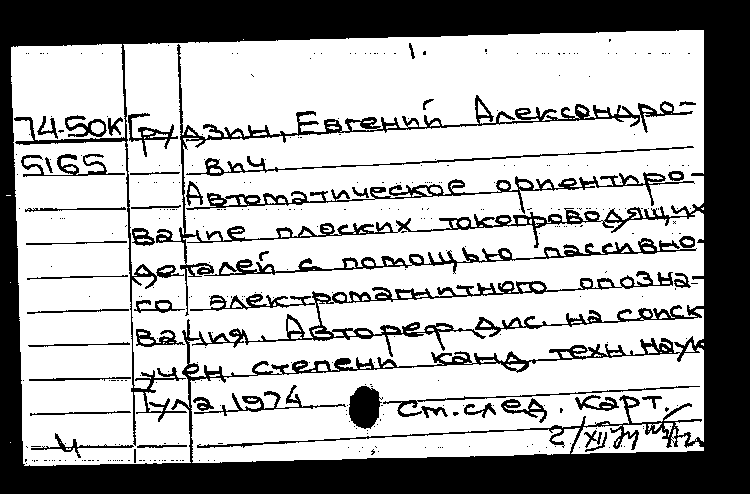 1.
74-50К Грудзин, Евгений Александро-
5165 вич.
Автоматическое ориентиро-
вание плоских токопроводящих
деталей с помощью пассивно-
го электромагнитного опозна-
вания. Автореф. дис. на соиск
учен. степени канд. техн. наук
Тула, 1974
Ст. след. карт.
ч 2/XII